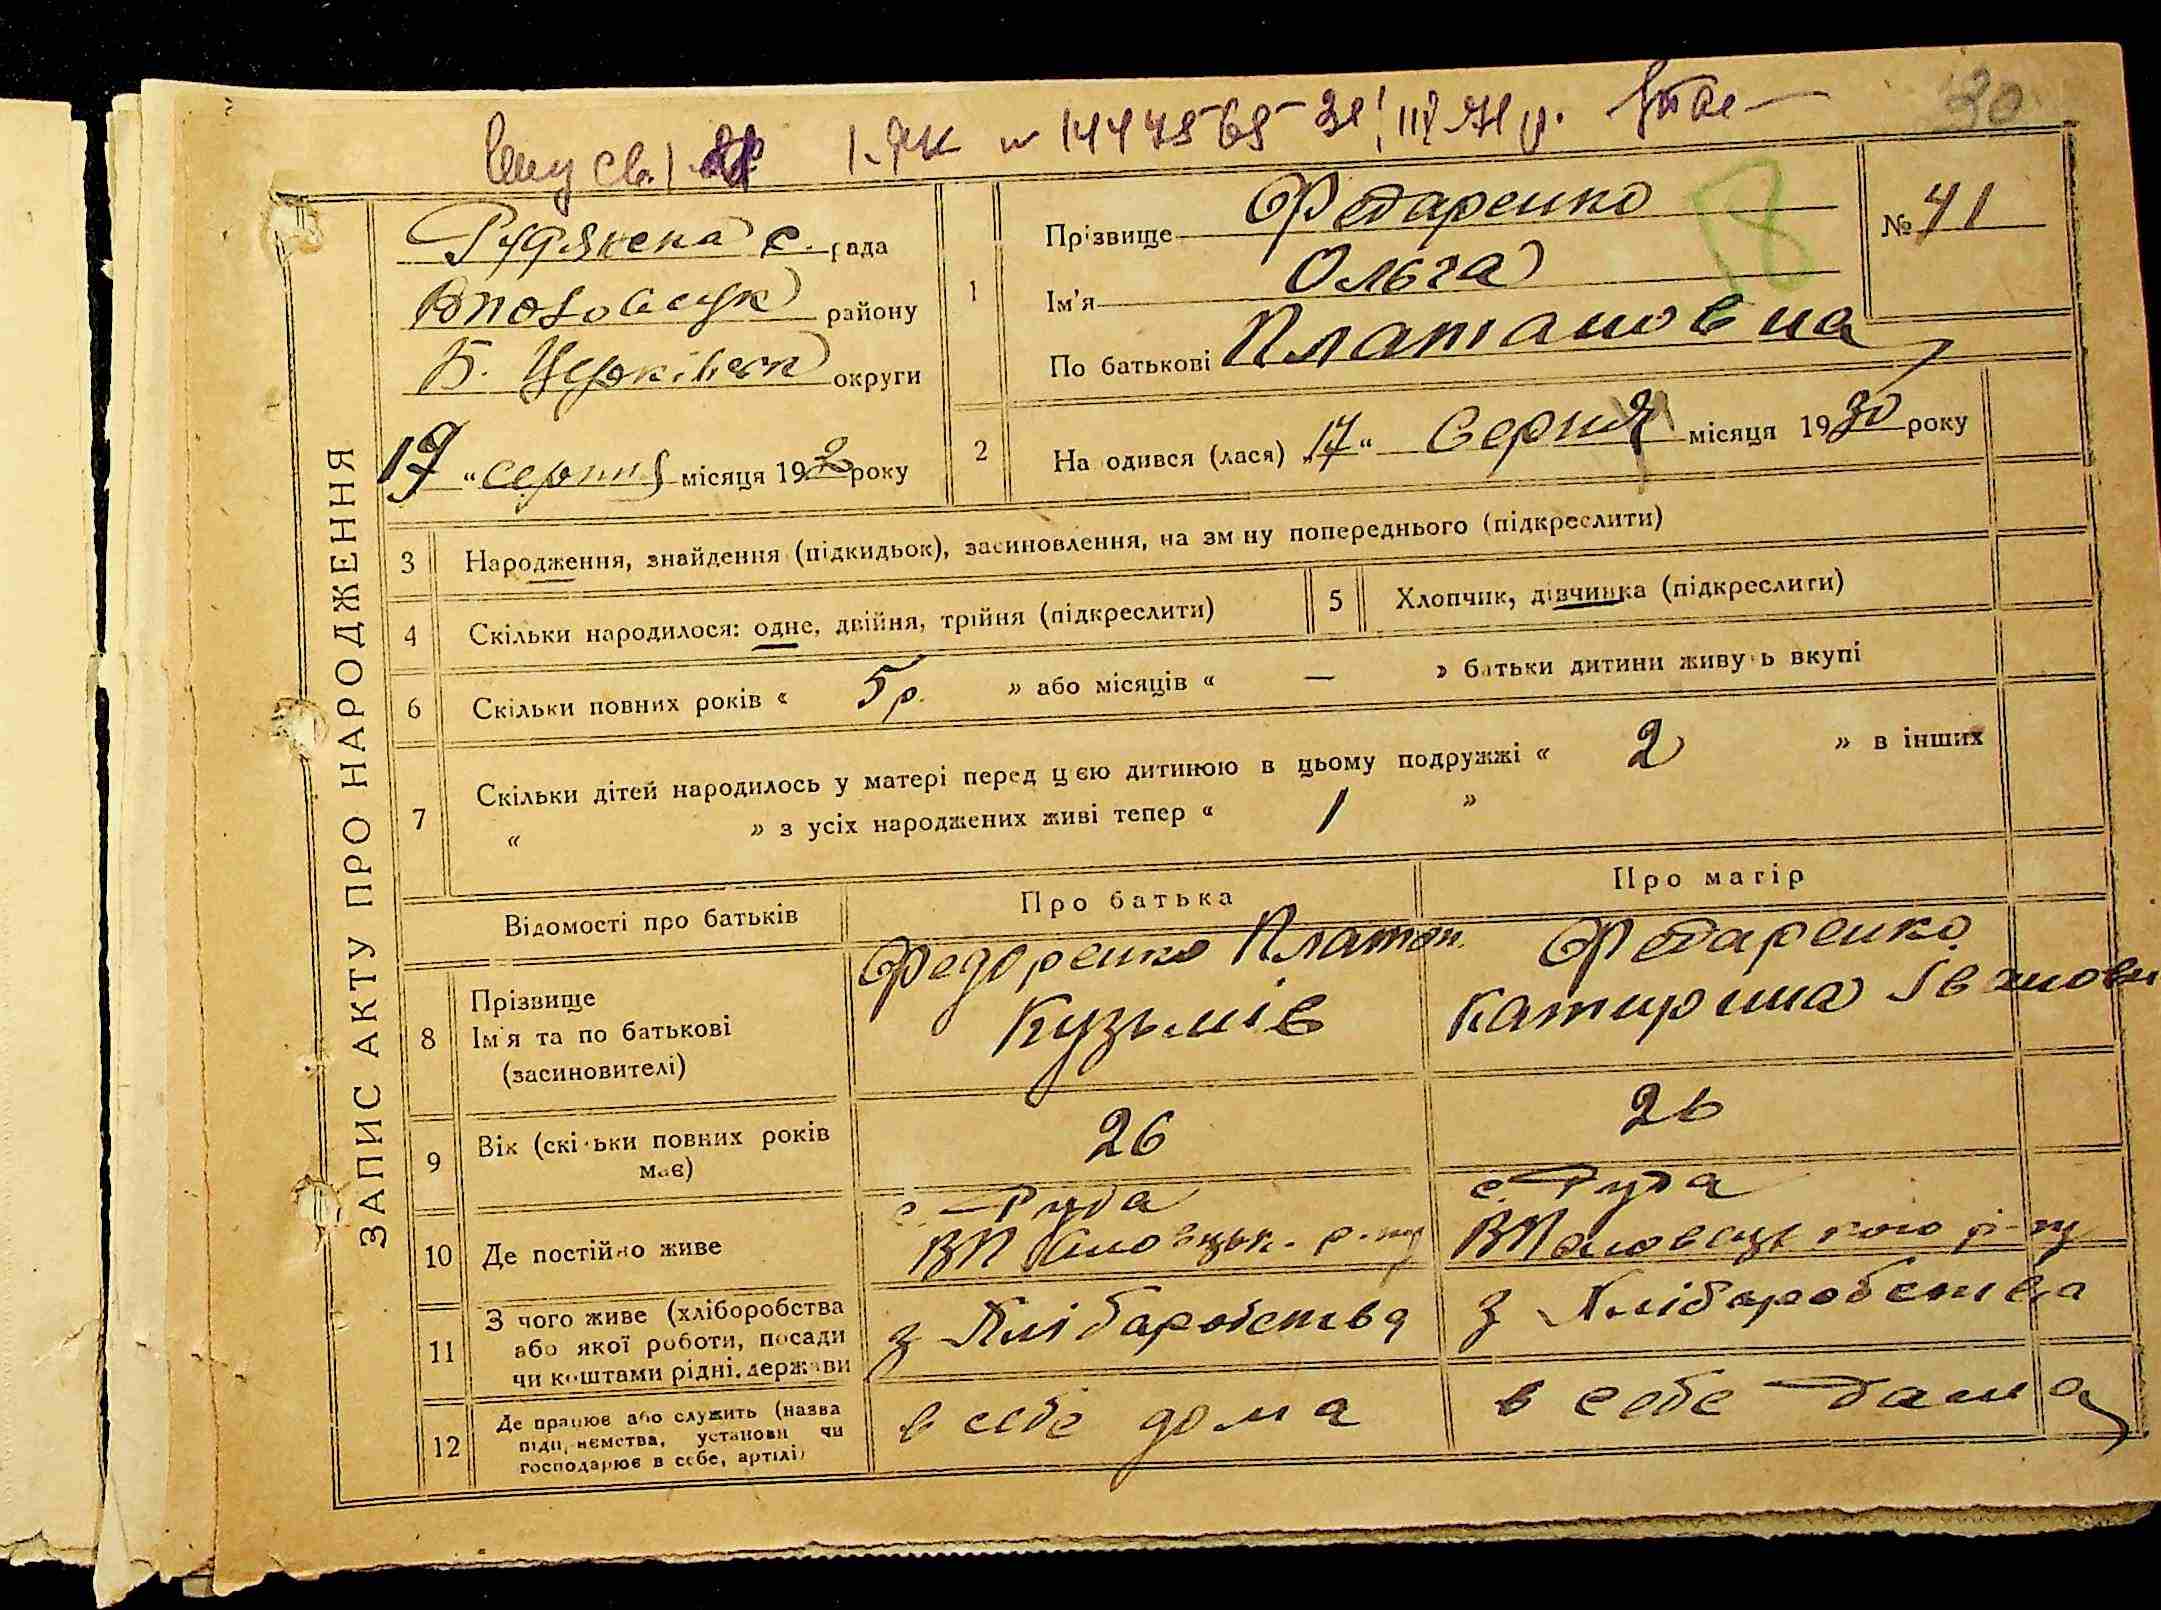 30
ЗАПИС АКТУ ПРО НАРОДЖЕННЯ
с. рада
району
Б. округи
19 "серпня місяця 19 року
1
Прізвище Федаренко
Ім'я Ольга
По батькові Платановна
№ 41
2
На одився (лася) „17" Серпня місяця 1930 року
3 Народження, знайдення (підкидьок), засиновлення, на зм ну попереднього (підкреслити)
4 Скільки народилося: одне, двійня, трійня (підкреслити)
5 Хлопчик, дівчинка (підкреслити)
6 Скільки повних років « 5 р. » або місяців « — » батьки дитини живу ь вкупі
7 Скільки дітей народилось у матері перед цією дитиною в цьому подружжі « 2 » в інших
« » з усіх народжених живі тепер « 1 »
Відомості про батьків
Про батька
Про матір
8
Прізвище
Ім'я та по батькові
(засиновителі)
Федоренко Платон.
Кузьмів
Федаренко
Катирина Івановн
9 Вік (скі ьки повних років
має)
26
26
10 Де постійно живе
с. Руда
с. Руда
11
З чого живе (хліборобства
або якої роботи, посади
чи коштами рідні, держави
з Хлібаробства
з Хлібаробства
12
Де працює або служить (назва
підп, иємства, установи чи
господарює в себе, артілі)
в себе дома
в себе дама